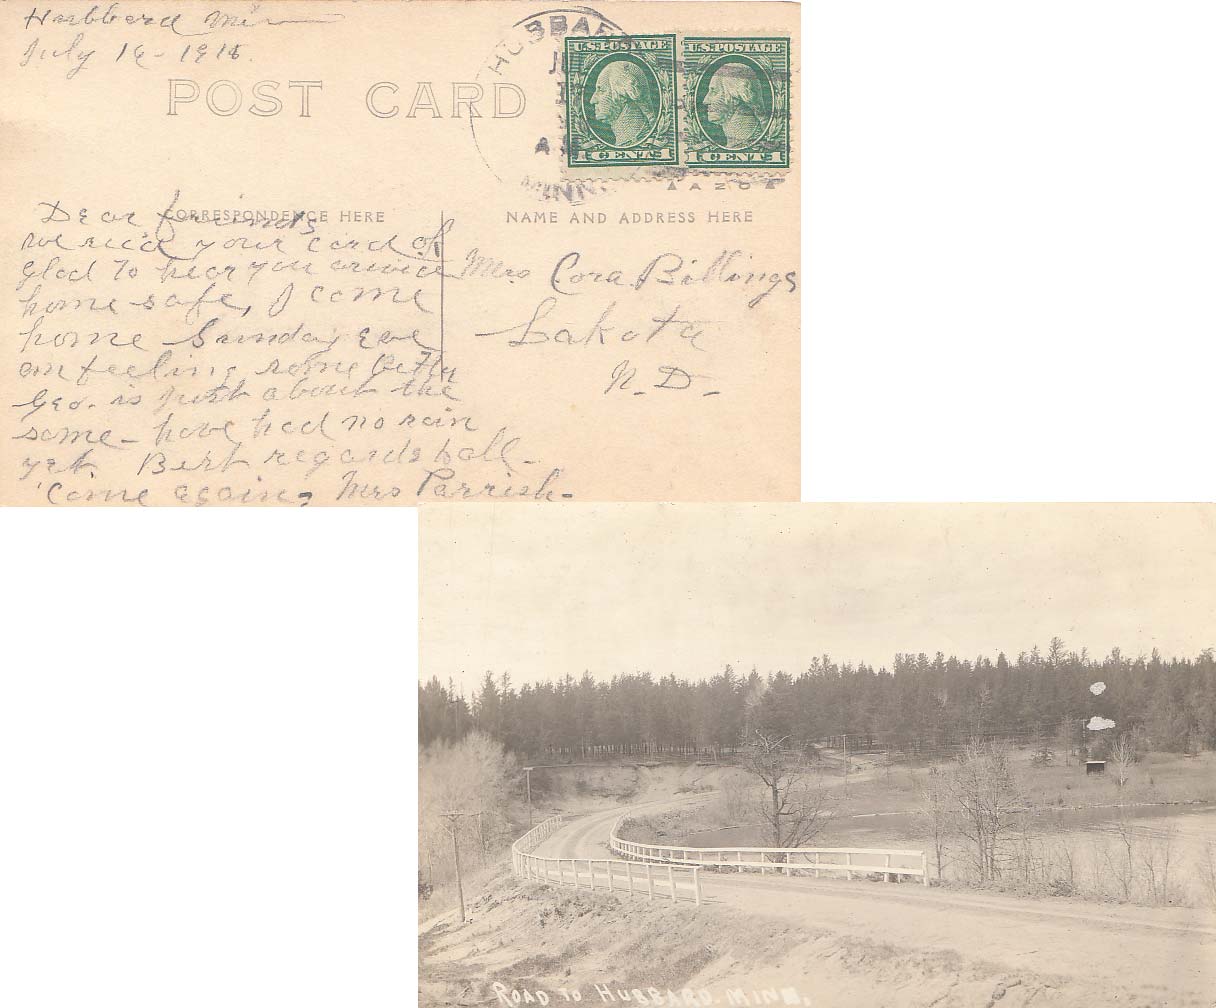 Hubbard Min
July 16 - 1918.
POST CARD
HUBBARD
MINN.
A.M.
U.S. POSTAGE U.S. POSTAGE
1 CENT 1 1 CENT 1
AZO
CORRESPONDENCE HERE
NAME AND ADDRESS HERE
Dear friends
we rec'd your card of
glad to hear you arrived
home safe, I come
home Sunday eve
am feeling some better
Geo. is just about the
same - have had no rain
yet. Best regards to all -
Come again, Mrs Parrish -
Mrs Cora Billings
Lakota
N. D. -
ROAD TO HUBBARD. MINN.